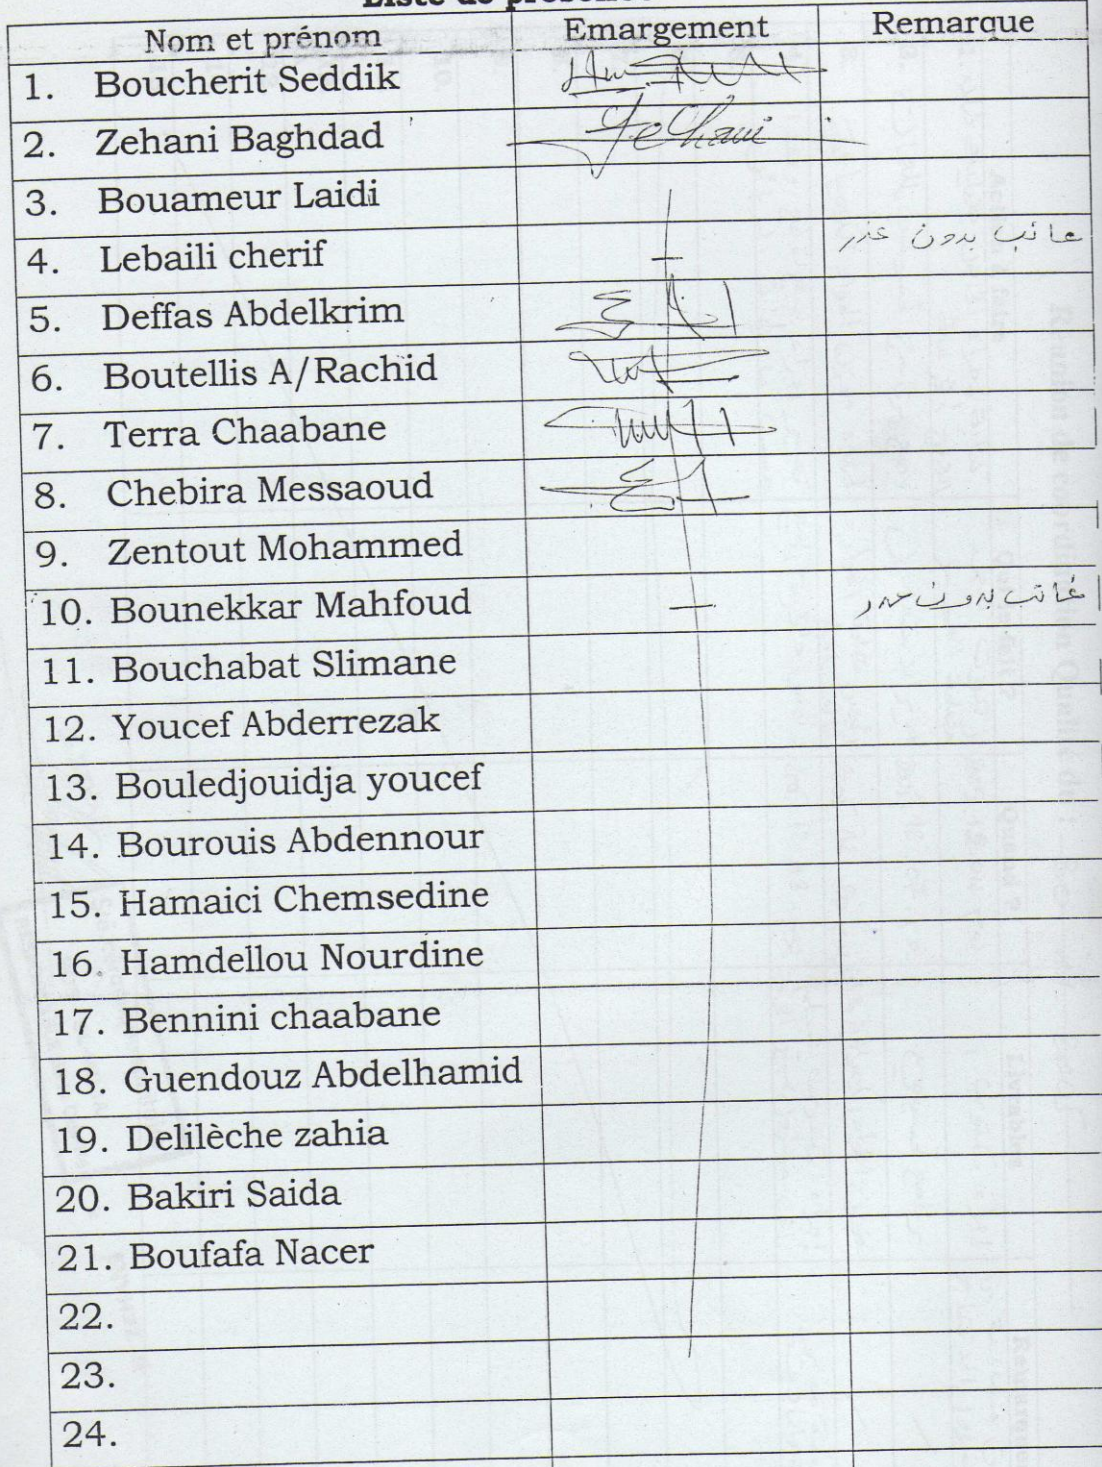 Liste de présence
Nom et prénom Emargement Remarque
1. Boucherit Seddik
2. Zehani Baghdad Zehani
3. Bouameur Laidi
4. Lebaili cherif — غائب بدون عذر
5. Deffas Abdelkrim
6. Boutellis A/Rachid
7. Terra Chaabane
8. Chebira Messaoud
9. Zentout Mohammed
10. Bounekkar Mahfoud — غائب بدون عذر
11. Bouchabat Slimane
12. Youcef Abderrezak
13. Bouledjouidja youcef
14. Bourouis Abdennour
15. Hamaici Chemsedine
16. Hamdellou Nourdine
17. Bennini chaabane
18. Guendouz Abdelhamid
19. Delilèche zahia
20. Bakiri Saida
21. Boufafa Nacer
22.
23.
24.